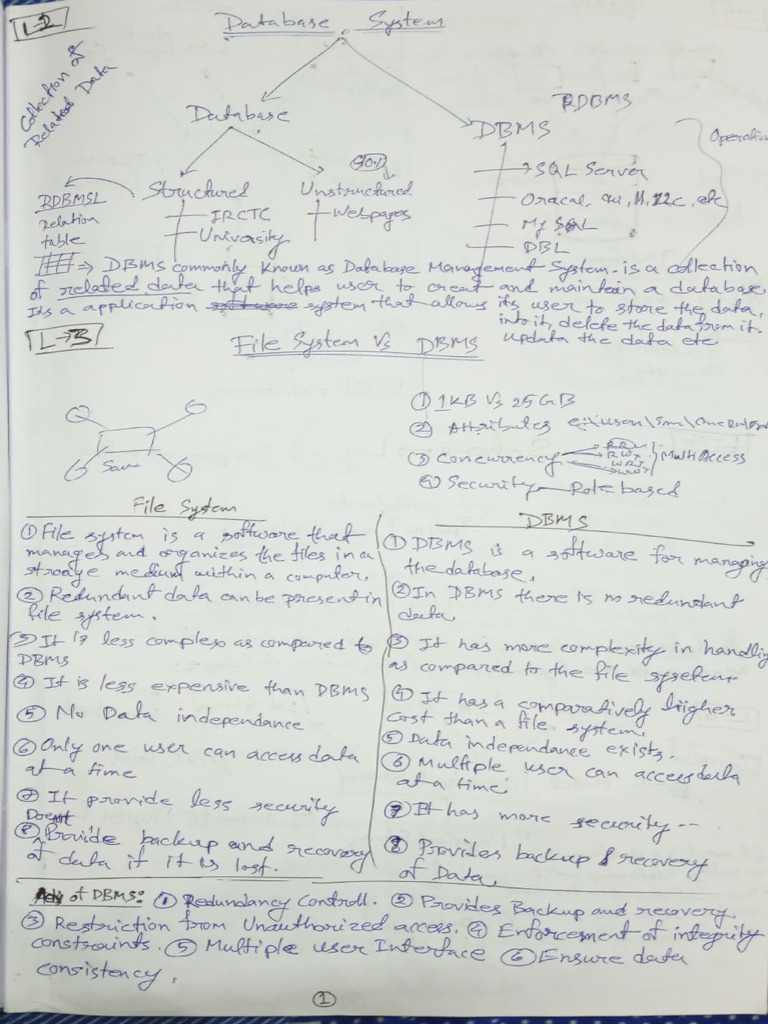 L-2
Database System
Collection of
Related Data
Database
RDBMS
DBMS
Operation
Structured
Unstructured
IRCTC
University
Webpages
RDBMSL
relation
table
SQL Server
Oracal, 11c, 12c, etc
My SQL
DBL
⇒ DBMS commonly known as Database Management System - is a collection
of related data that helps user to creat and maintain a database,
Its a application software system that allows its user to store the data,
into it, delete the data from it.
updata the data etc
L→3
File System Vs DBMS
① 1KB Vs 25 GB
② Attributes
③ Concurrency RR RW WR WW Multi Access
④ Security Role based
File System
① File system is a software that
manages and organizes the files in a
stroage medium within a computer.
② Redundant data can be present in
file system.
③ It is less complex as compared to
DBMS
④ It is less expensive than DBMS
⑤ No Data independance
⑥ Only one user can access data
at a time
⑦ It provide less security
Doesnt
⑧ Provide backup and recovery
of data if it is lost.
DBMS
① DBMS is a software for managing
the database.
② In DBMS there is no redundant
data.
③ It has more complexity in handling
as compared to the file sysetem
④ It has a comparatively higher
cost than a file system.
⑤ Data independence exists.
⑥ Multiple user can access data
at a time
⑦ It has more security --
⑧ Provides backup & recovery
of Data.
Adv of DBMS: ① Redundancy Controll. ② Provides Backup and recovery.
③ Restriction from Unauthorized access. ④ Enforcement of integrity
constraints. ⑤ Multiple user Interface ⑥ Ensure data
consistency.
①